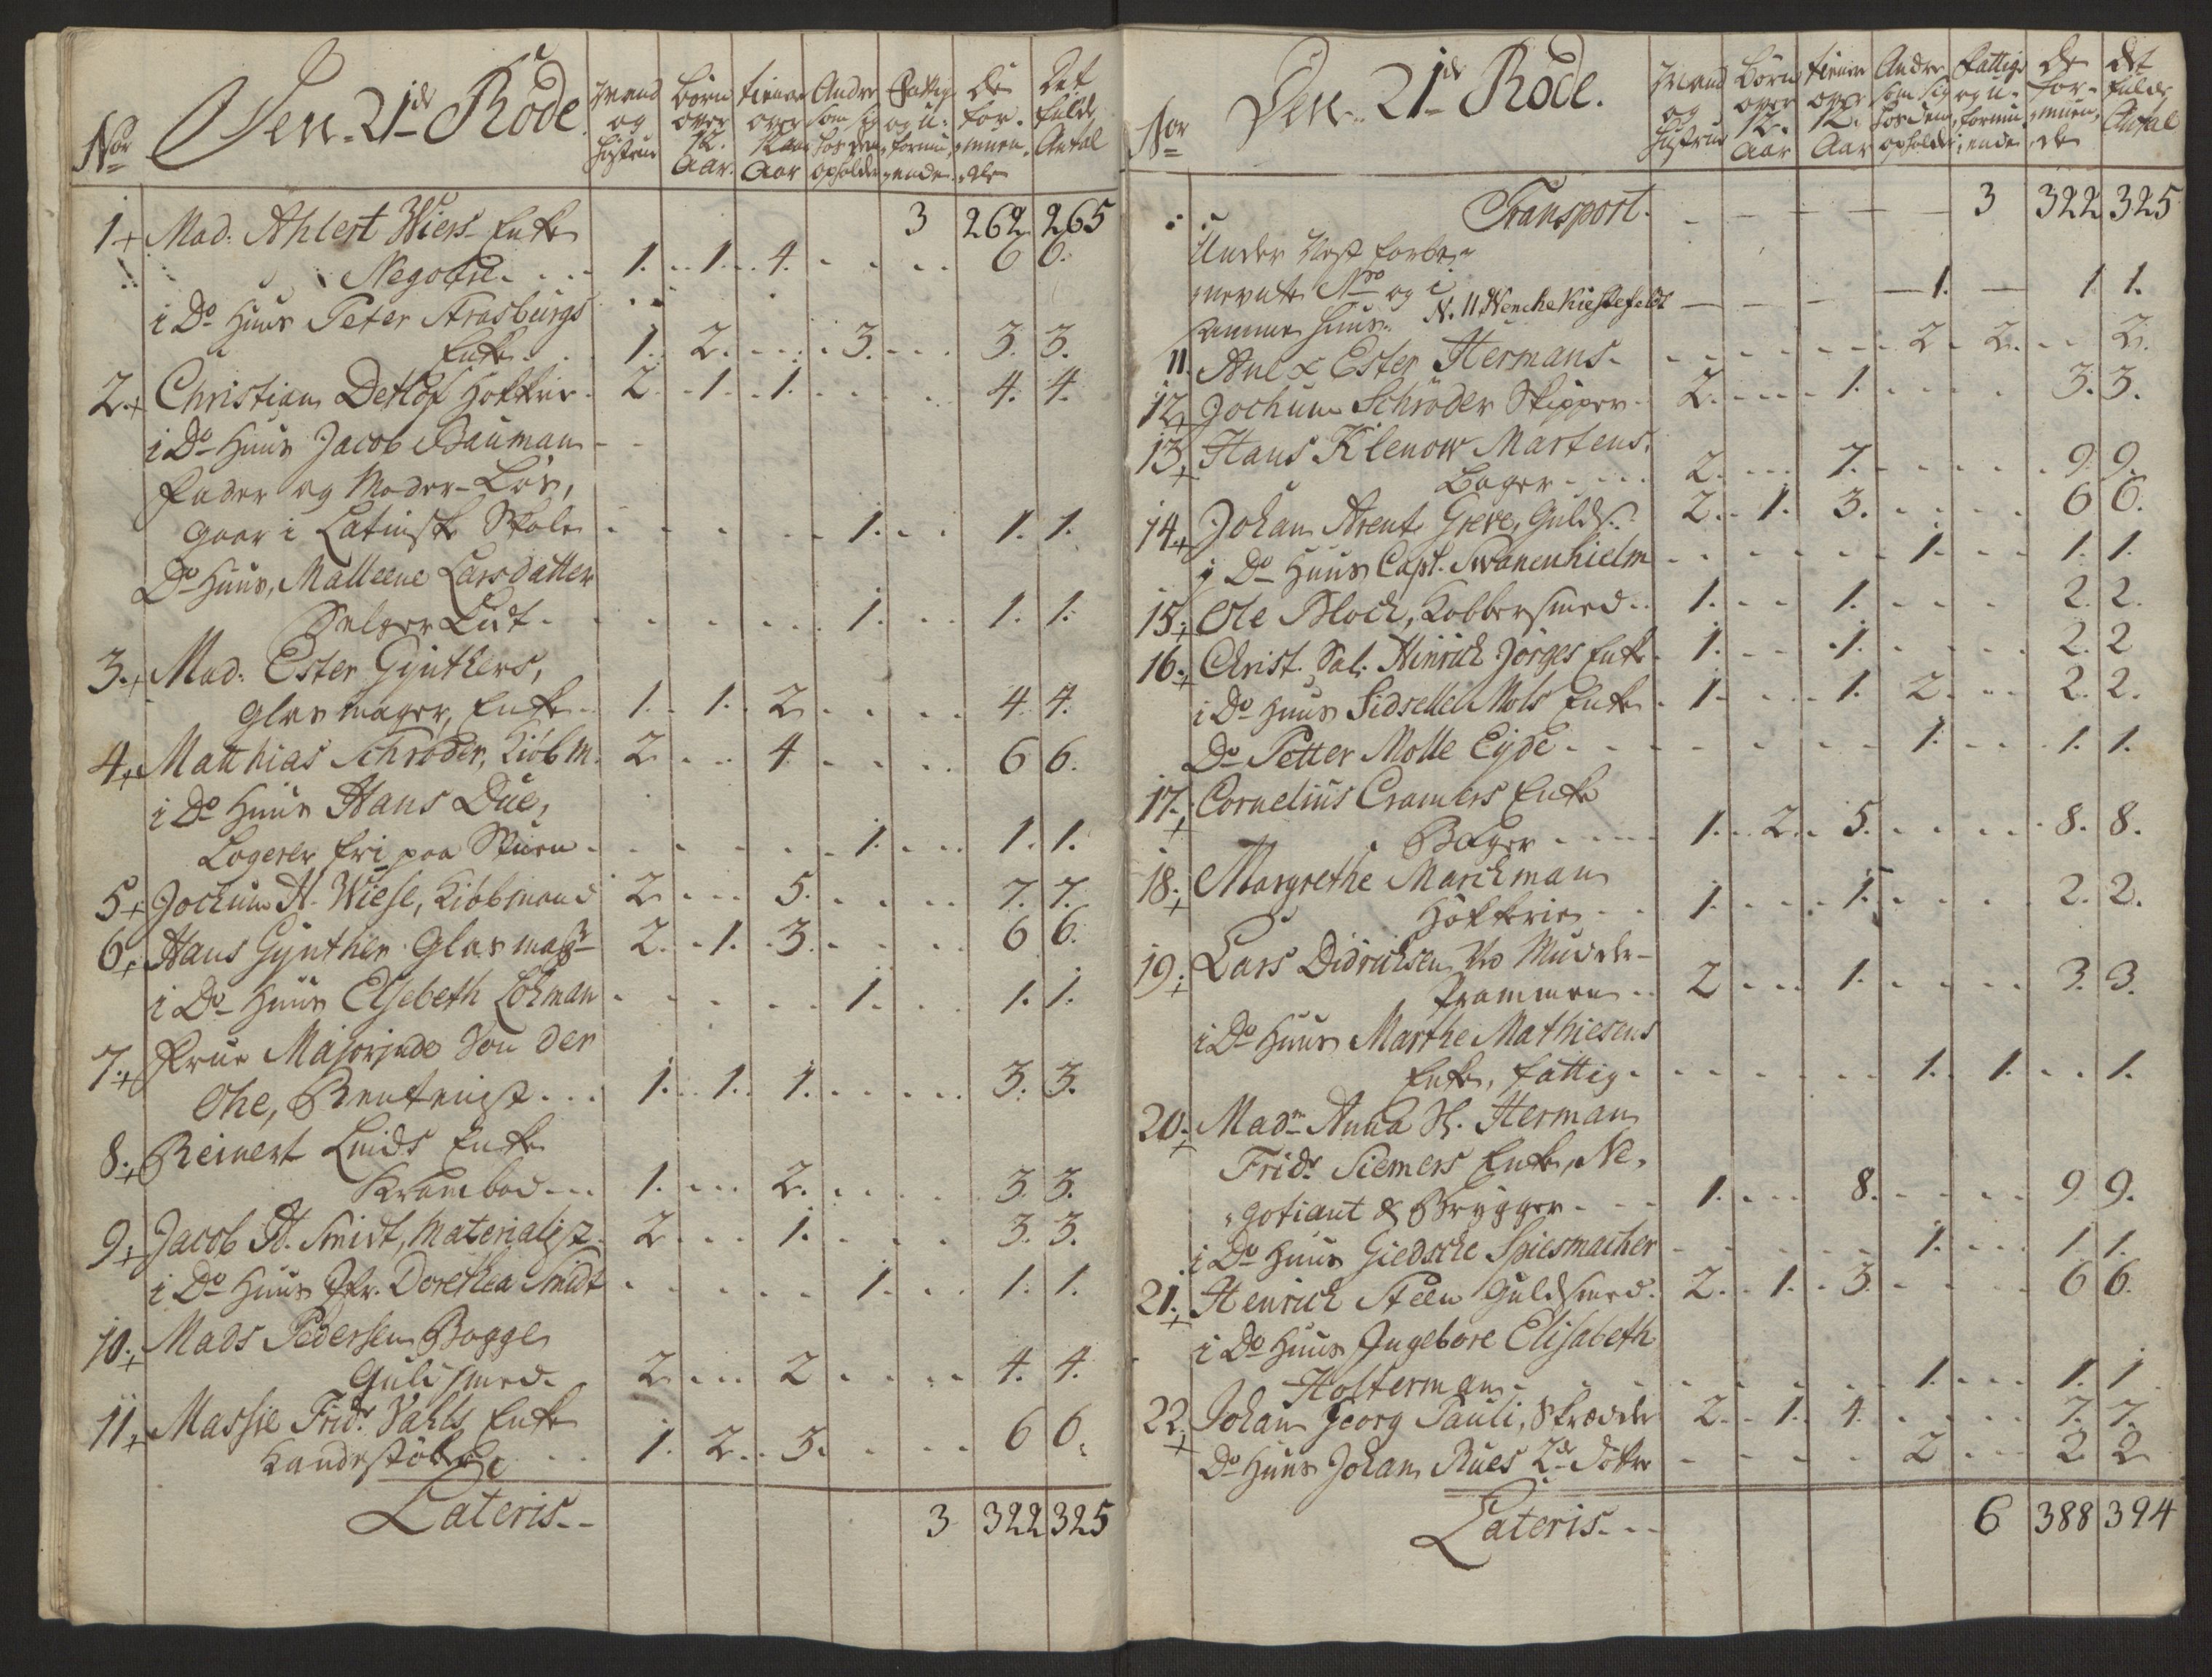 No Den 21de Rode Mand og Hustrue Børn over 12. Aar. tienere over 12 Aar Andre som sig hos dem opholde Fattige og u-formuende De for-muen-de Det fulde Antal
3 262 265
1 Mad. Ahlert Wiers Enke
Negotie 1. 1. 4. 6 6.
i Do Huus Peter Strasburgs
Enke 1. 2. 3. 3. 3.
2. Christian Detlof Høkker 2. 1. 1. 4. 4.
i Do Huus Jacob Bauman
Fader og Moder-Løs,
gaar i Latinske Skole 1. 1. 1.
Do Huus, Malleene Larsdatter
Selger Lidt 1. 1. 1.
3. Mad. Ester Gynthers,
Glasmager, Enke 1. 1. 2 4. 4.
4. Matthias Schrøder, Kiøbm. 2 4 6 6.
i Do Huus Hans Due,
Logerer fri paa Stuen 1. 1. 1.
5 Jochum H. Wiese, Kiøbmand 2 5. 7. 7.
6. Hans Gynther Glasmagr 2. 1. 3. 6 6.
i Do Huus Elsebeth Lohman 1. 1. 1.
7. Frue Majorinde Von der
Ohe, Rentenist 1. 1. 1. 3. 3.
8. Reinert Lnids Enke
Krambod 1. 2. 3. 3.
9. Jacob H. Smidt, Materialist 2 1. 3. 3.
i Do Huus Jfr. Dorethea Smidt 1. 1. 1.
10. Mads Pedersen Bogge
Guldsmed 2 2 4. 4.
11. Massie Fridr Vahls Enke
Kandestøber 1. 2. 3. 6 6.
Lateris 3 322 325
No Den 21de Rode. Mand og Hustrue Børn over 12. Aar tienere over 12. Aar Andre som sig hos dem opholde Fattige og u-formuende De for-muen-de Det fulde Antal
Transport 3 322 325
Under Nest forbe-
mevnte No og i
samme Huus N. 11 Wenche Kiestefeldt 1. 1 1.
11. Ane & Ester Hermans 2 2. 2.
12. Jochum Schrøder Skipper 2. 1. 3. 3.
13. Hans Klenow Martens,
Bager 2. 7. 9. 9.
14. Johan Arent Greve, Guldsm. 2. 1. 3. 6 6.
i Do Huus Capt. Svanenhielm 1. 1. 1.
15. Ole Block, Kobbersmed 1. 1. 2. 2.
16. Christ. Sal. Hinrich Jørges Enke 1. 1. 2. 2
i Do Huus Sidsellel Mols Enke 1. 1. 2. 2. 2.
Do Petter Molle Eyde 1. 1. 1.
17. Cornelius Cramers Enke
Bager 1. 2. 5. 8. 8.
18. Margrethe Marckman
Høkkrie 1. 1. 2. 2.
19. Lars Didrichsen Ved Mudder-
prammen 2 1. 3. 3.
i Do Huus Marthe Mathiesens
Enke, fattig 1. 1. 1.
20. Madm Anna H. Herman
Fridr Siemers Enke, Ne-
gotiant & Brygger 1. 8. 9 9.
i Do Huus Giedsche Spiesmacher 1. 1 1.
21. Henrich Steen Guldsmed 2. 1. 3. 6 6.
i Do Huus Ingebore Elisabeth
Holterman 1. 1. 1
22. Johan Georg Pauli, Skrædder 2. 1. 4. 7. 7.
Do Huus Johan Rues 2de Døtre 2 2 2
Lateris 6 388 394